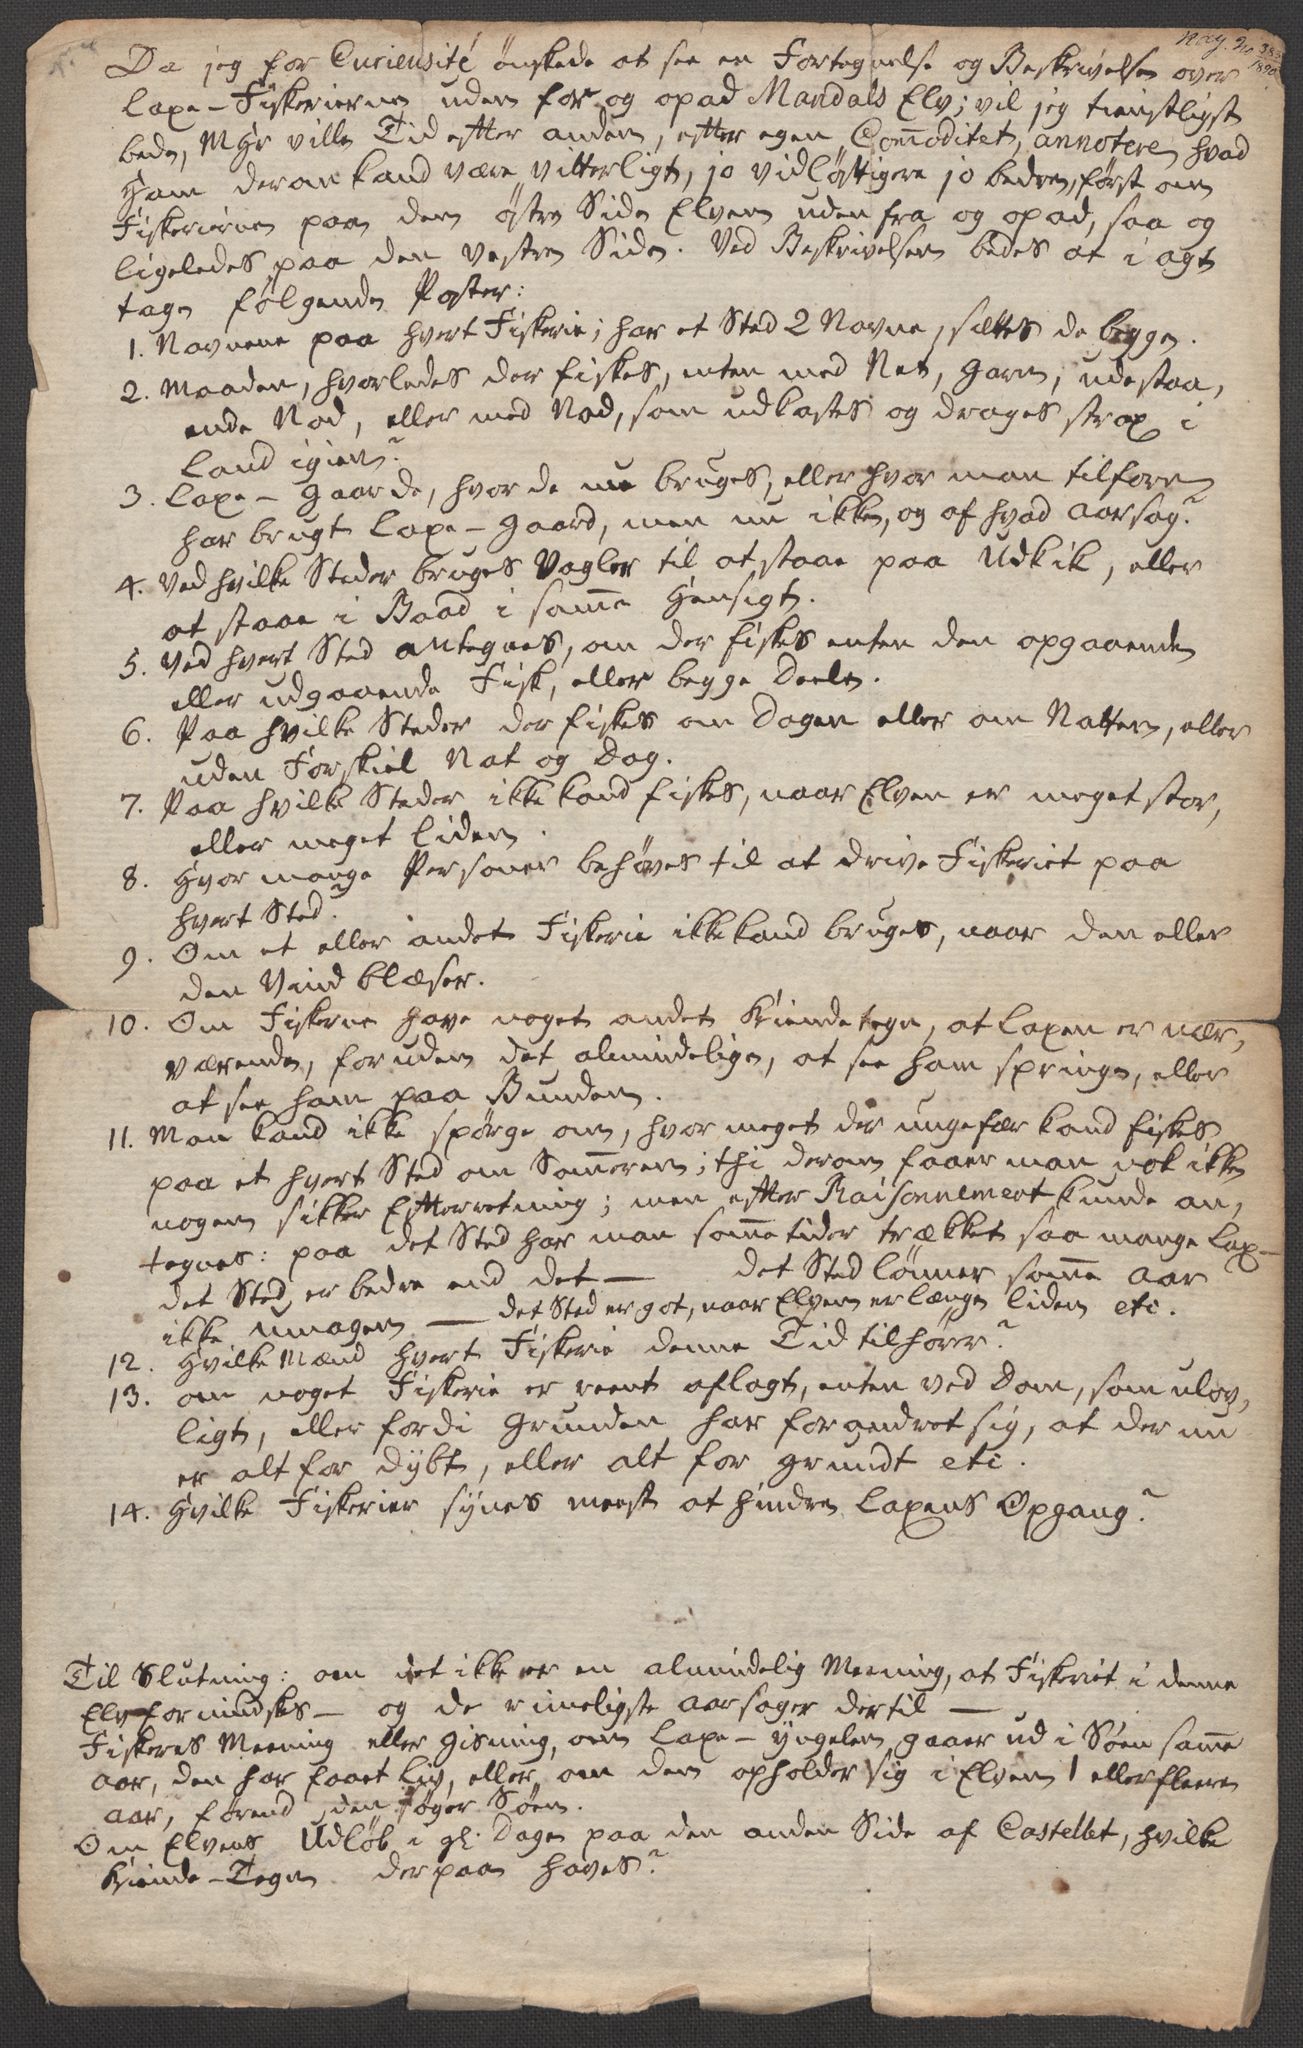 Da jeg for Curieusité ønskede at see en Fortegnelse og Beskrivelse over
Laxe-Fiskerierne uden for og opad Mandals Elv; vil jeg tienstligst
bede, MHr ville Tid efter anden, efter egen Com̅oditet, annotere hvad
Ham derom kand være vitterligt, jo vidløftigere jo bedre, først om
Fiskerierne paa den østre Side Elven uden fra og opad, saa og
ligeledes paa den vestre Side. Ved Beskrivelsen bedes at i agt
tage følgende Poster:
1. Navnene paa hvert Fiskerie; har et Sted 2 Navne, sættes de begge.
2. Maaden, hvorledes der fiskes, enten med Net, Garn, udestaa,
ende Nod, eller med Nod, som udkastes og drages strax i
Land igien?
3. Laxe-Gaarde, hvor de nu bruges, eller hvor man tilforn
har brugt Laxe-Gaard, men nu ikke, og af hvad Aarsag?
4. Ved hvilke Steder bruges Vagler til at staae paa Udkik, eller
at staae i Baad i sam̅e Hensigt.
5. Ved hvert Sted antegnes, om der fiskes enten den opgaaende
eller udgaaende Fisk, eller begge Deele.
6. Paa hvilke Steder der fiskes om Dagen eller om Natten, eller
uden Forskiel Nat og Dag.
7. Paa hvilke Steder ikke kand fiskes, naar Elven er meget stor,
eller meget liden.
8. Hvor mange Personer behøves til at drive Fiskeriet paa
hvert Sted?
9. Om et eller andet Fiskerie ikke kand bruges, naar den eller
den Vind blæser.
10. Om Fiskerne have noget andet Kiendetegn, at Laxen er nær,
værende, foruden det almindelige, at see ham springe, eller
at see ham paa Bunden.
11. Man kand ikke spørge om, hvor meget der ungefær kand fiskes
paa et hvert Sted om Som̅eren; thi derom faaer man nok ikke
nogen sikker Efterretning; men efter Raisonnement kunde an,
tegnes: paa det Sted har man som̅e tider trækket saa mange Lax-
det Sted er bedre end det — det Sted lønner som̅e Aar
ikke Umagen — det Sted er got, naar Elven er længe liden etc.
12. Hvilke Mænd hvert Fiskerie denne Tid tilhører?
13. om noget Fiskerie er reent aflagt, enten ved Dom, som ulov,
ligt, eller fordi Grunden har forandret sig, at der nu
er alt for dybt, eller alt for grundt etc.
14. Hvilke Fiskerier synes meest at hindre Laxens Opgang?
Til Slutning: om det ikke er en almindelig Meening, at Fiskeriet i denne
Elv formindskes — og de rimeligste Aarsager dertil —
Fiskeres Meening eller Gisning, om Laxe-yngelen gaaer ud i Søen sam̅e
Aar, den har faaet Liv, eller om den opholder sig i Elven 1 eller fleere
Aar, førend den søger Søen.
Om Elvens Udløb i gl. Dage paa den anden Side af Castellet, hvilke
Kiende-Tegn derpaa haves?